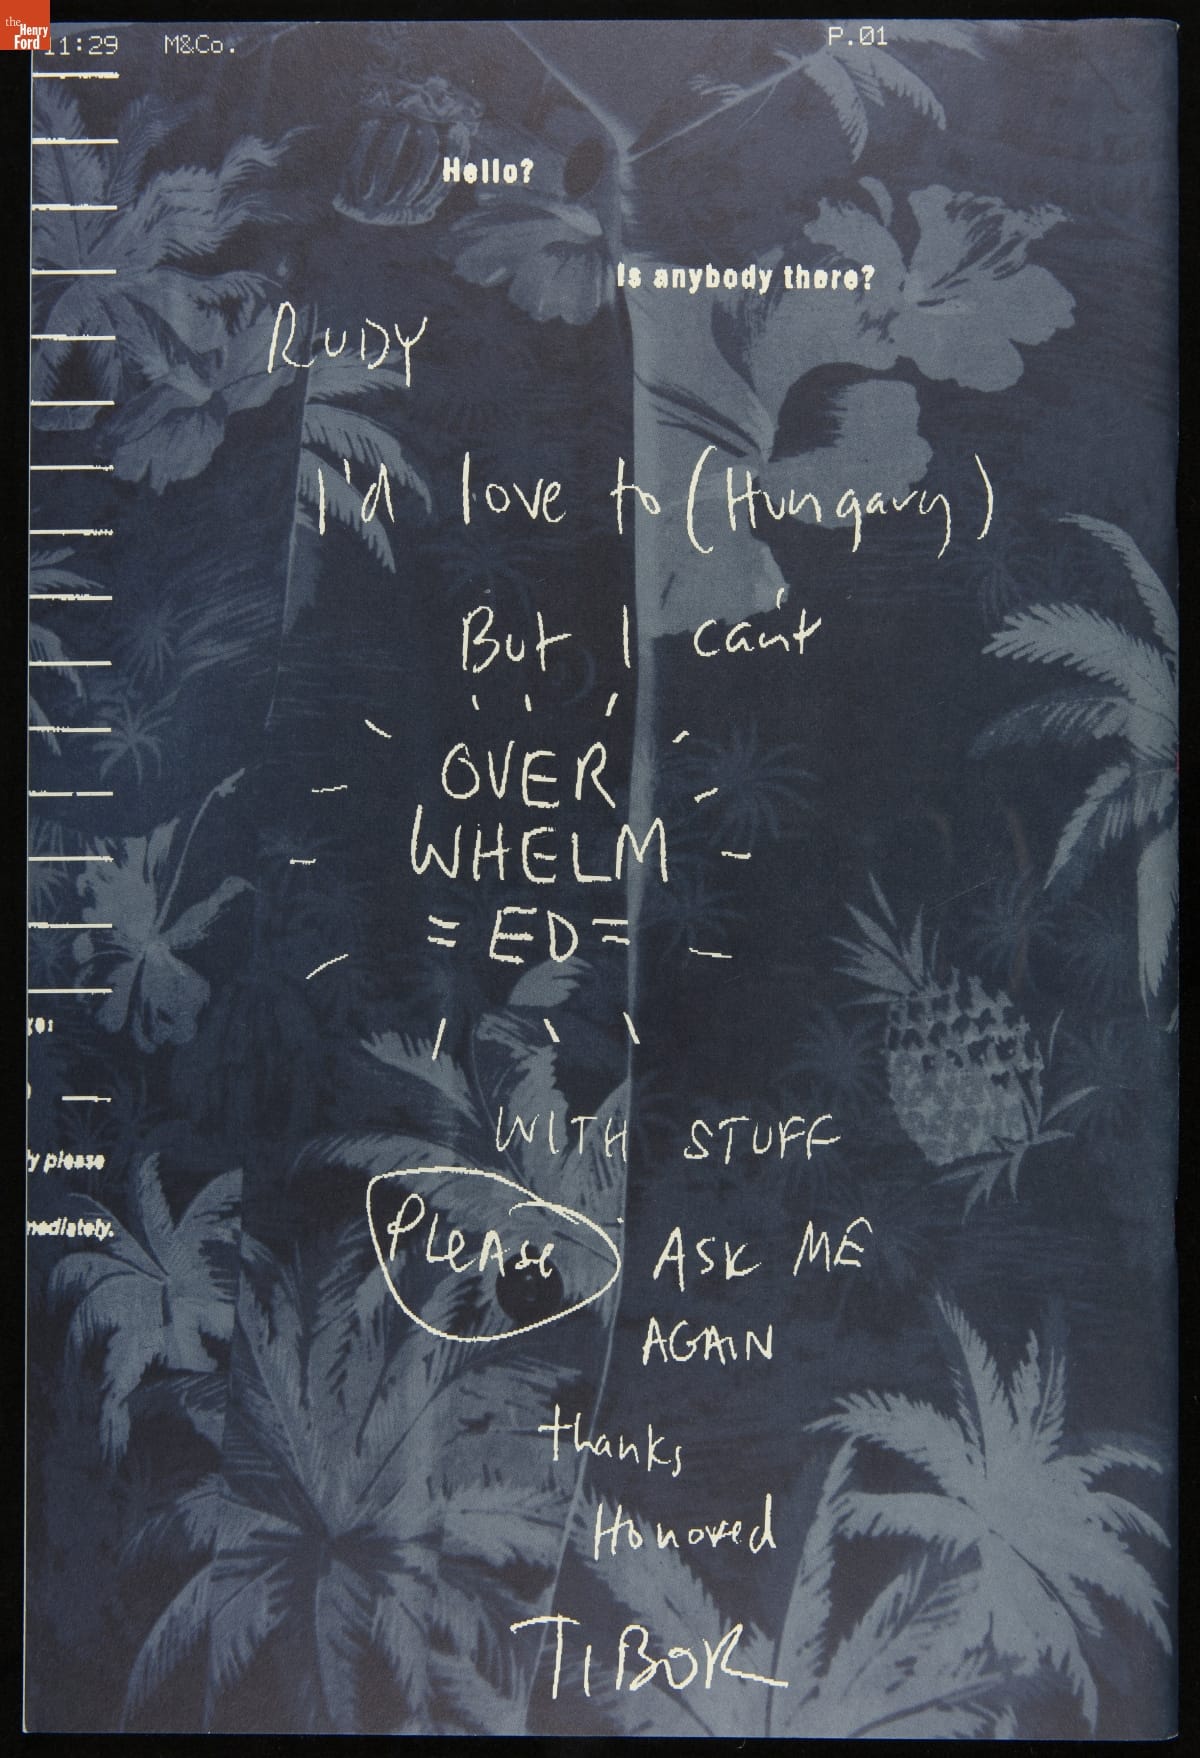 the
Henry
Ford
11:29 M&Co. P.01
Hello?
Is anybody there?
RUDY
I'd love to (Hungary)
But I can't
OVER
WHELM
ED
WITH STUFF
PLEASE ASK ME
AGAIN
thanks
Honored
TIBOR
y please
mediately.